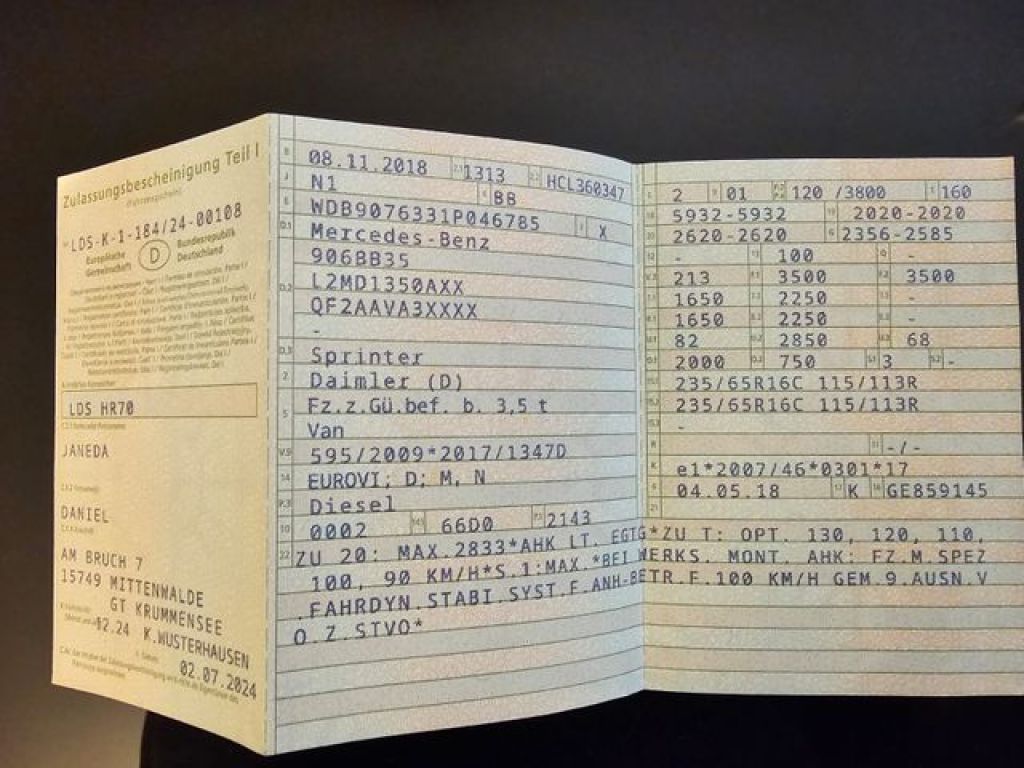 Zulassungsbescheinigung Teil I
(Fahrzeugschein)
LDS-K-1-184/24-00108
Europäische Gemeinschaft
D
Bundesrepublik Deutschland
LDS HR70
JANEDA
DANIEL
AM BRUCH 7
15749 MITTENWALDE
GT KRUMMENSEE
12.24 K.WUSTERHAUSEN
02.07.2024
B 08.11.2018 2.1 1313 2.2 HCL360347
J N1 4 BB
E WDB9076331P046785 3 X
D.1 Mercedes-Benz
906BB35
D.2 L2MD1350AXX
QF2AAVA3XXXX
-
D.3 Sprinter
2 Daimler (D)
5 Fz.z.Gü.bef. b. 3,5 t
Van
V.9 595/2009*2017/1347D
14 EUROVI; D; M, N
P.3 Diesel
10 0002 14.1 66D0 P.1 2143
22 ZU 20: MAX.2833*AHK LT. EGTG*ZU T: OPT. 130, 120, 110,
100, 90 KM/H*S.1:MAX.*BEI WERKS. MONT. AHK: FZ.M.SPEZ
.FAHRDYN.STABI.SYST.F.ANH-BETR.F.100 KM/H GEM.9.AUSN.V
O.Z.STVO*
L 2 9 01 120 /3800 T 160
18 5932-5932 19 2020-2020
20 2620-2620 G 2356-2585
12 - 13 100 Q -
V.7 213 F.1 3500 F.2 3500
7.1 1650 7.2 2250 7.3 -
8.1 1650 8.2 2250 8.3 -
U.1 82 U.2 2850 U.3 68
O.1 2000 O.2 750 S.1 3 S.2 -
15.1 235/65R16C 115/113R
15.2 235/65R16C 115/113R
15.3 -
R 11 -/-
K e1*2007/46*0301*17
6 04.05.18 17 K 16 GE859145
21